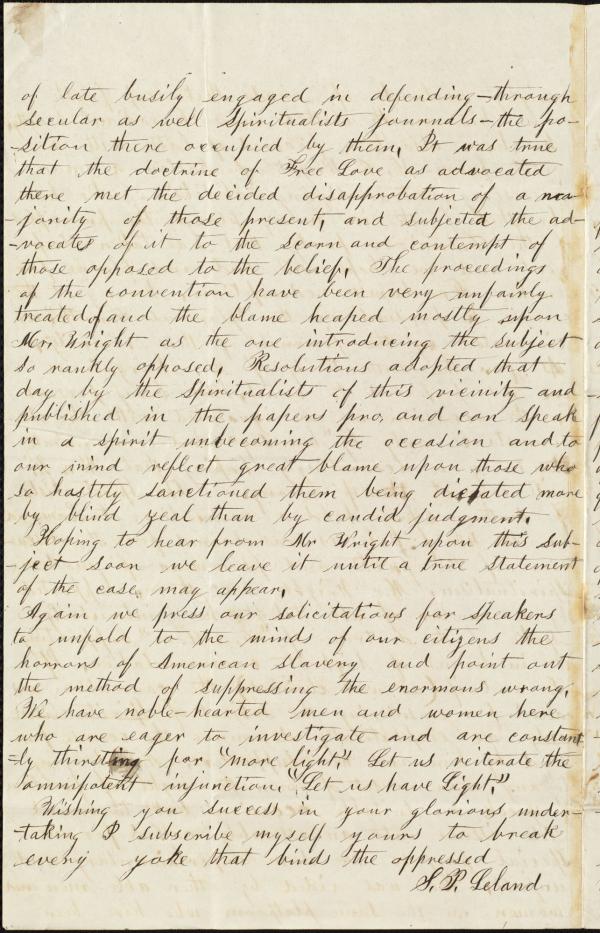 of late busily engaged in defending–through
secular as well Spiritualists journals–the po-
-sition there occupied by them, It was true
that the doctrine of Free Love as advocated
there met the decided disapprobation of a ma-
-jority of those present, and subjected the ad-
-vocates of it to the scorn and contempt of
those opposed to the belief, The proceedings
of the convention have been very unfairly
treated, and the blame heaped mostly upon
Mr. Wright as the one introducing the subject
so rankly opposed, Resolutions adopted that
day by the Spiritualists of this vicinity and
published in the papers pro, and con speak
in a spirit unbecoming the occasion and to
our mind reflect great blame upon those who
so hastily sanctioned them being dictated more
by blind zeal than by candid judgment.
Hoping to hear from Mr Wright upon this sub-
-ject soon we leave it until a true statement
of the case may appear,
Again we press our solicitations for speakers
to unfold to the minds of our citizens the
horrors of American slavery and point out
the method of suppressing the enormous wrong.
We have noble-hearted men and women here
who are eager to investigate and are constant
-ly thirsting for "more light," Let us reiterate the
omnipotent injunction, "Let us have Light,"
Wishing you success in your glorious under-
-taking I subscribe myself yours to break
every yoke that binds the oppressed
S. P. Leland